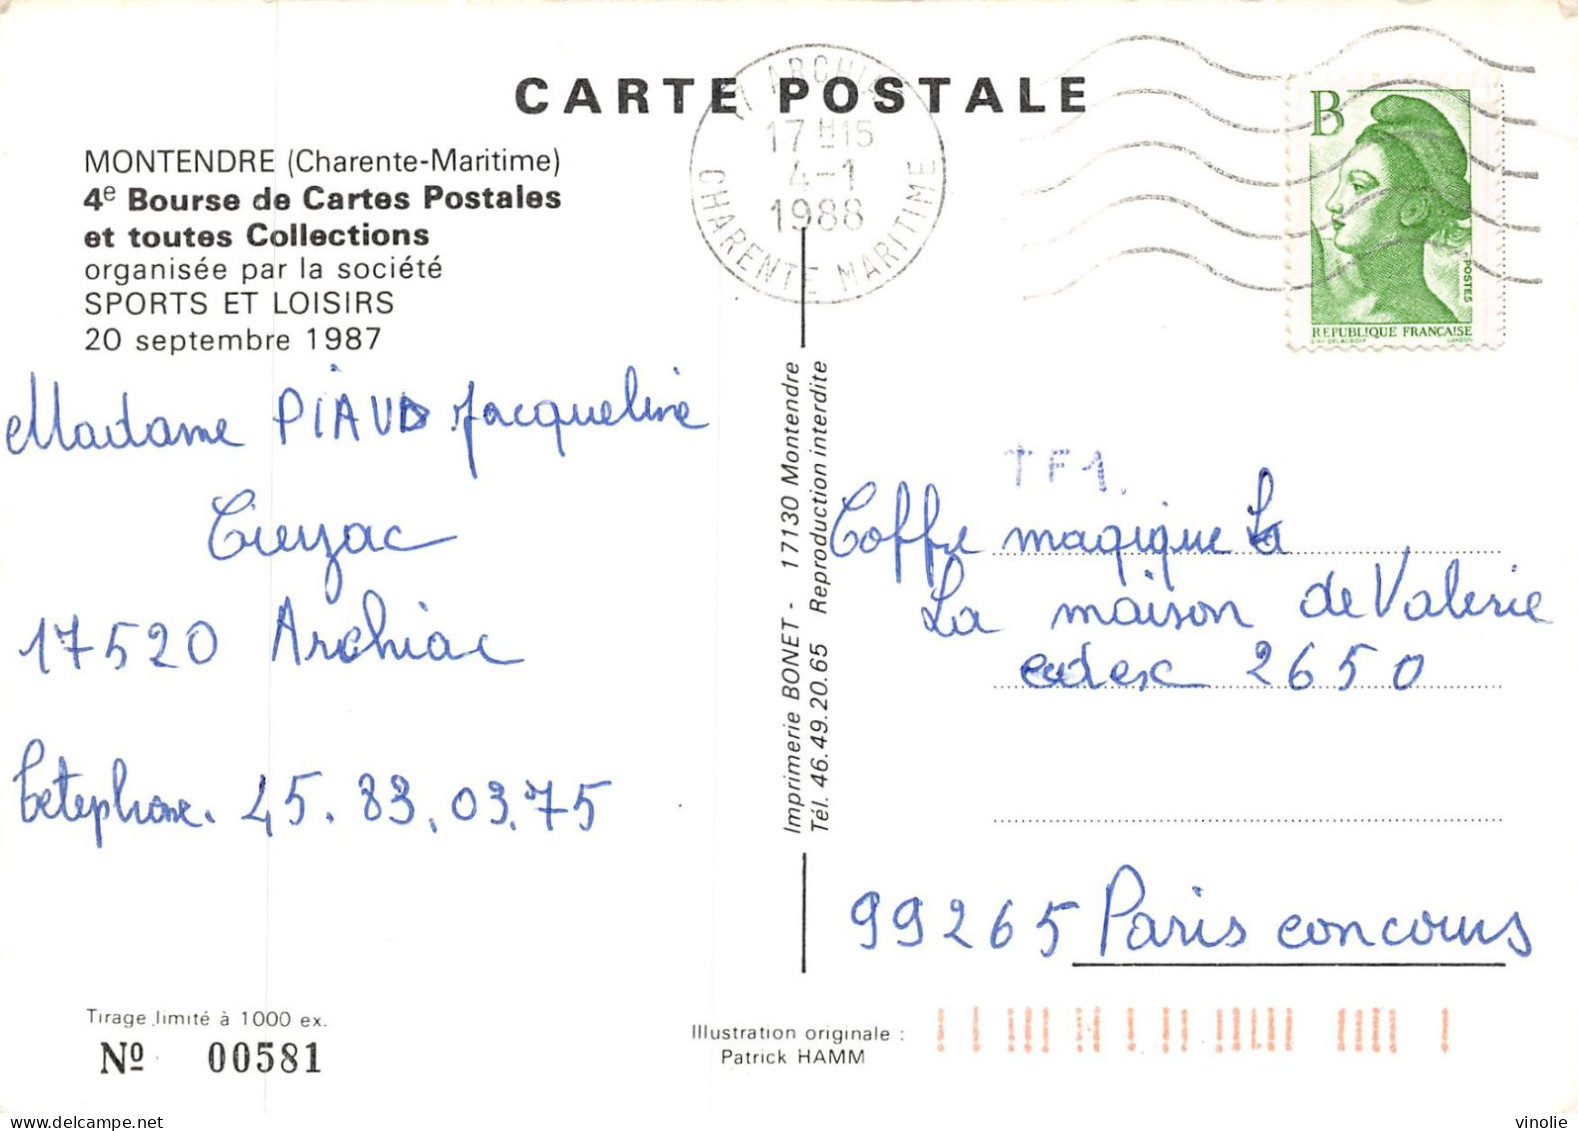 CARTE POSTALE
MONTENDRE (Charente-Maritime)
4e Bourse de Cartes Postales
et toutes Collections
organisée par la société
SPORTS ET LOISIRS
20 septembre 1987
17 H15
4-1
1988
CHARENTE MARITIME
B
POSTES
REPUBLIQUE FRANÇAISE
D'AP. DELACROIX
GANDON
Madame PIAUD Jacqueline
17520 Archiac
Telephone. 45.83.03.75
Imprimerie BONET - 17130 Montendre
Tél. 46.49.20.65 Reproduction interdite
TF1.
Coffre magique La
La maison de Valerie
cedex 2650
99265 Paris concours
Tirage limité à 1000 ex.
Nº 00581
Illustration originale :
Patrick HAMM
delcampe.net
vinolie